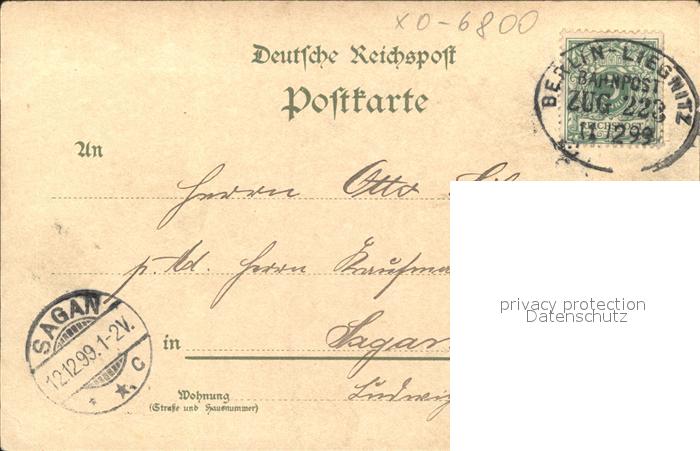 XO-6800
Deutsche Reichspost
Postkarte
BERLIN-LIEGNITZ
BAHNPOST
ZUG 223
11 12 99
An
Herrn Otto
p. Ad. Herrn Kaufma
privacy protection
Datenschutz
SAGAN
12.12.99.1-2V.
C
in Sagan
Wohnung
(Straße und Hausnummer)
Ludwig